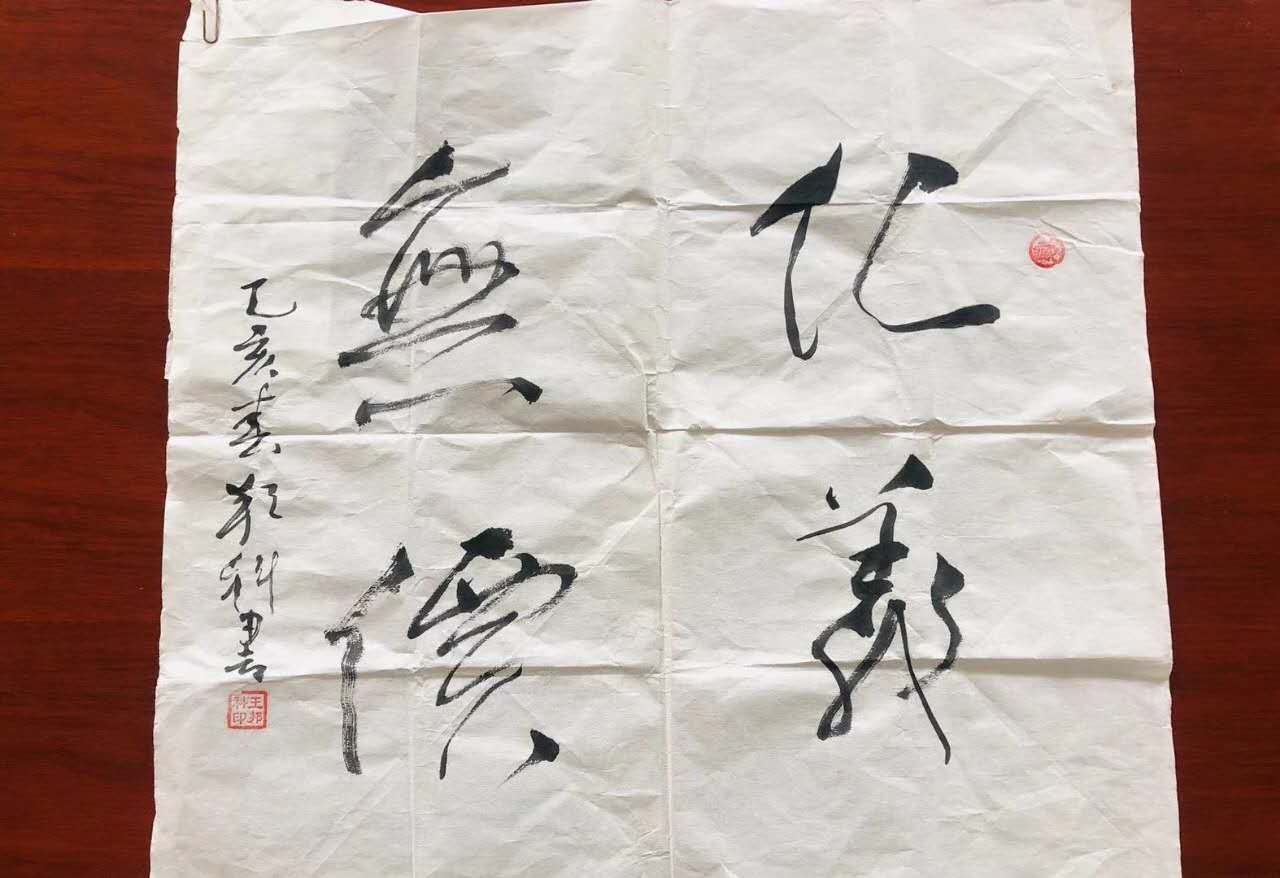 仁義
無價
己亥春邦科書
王邦
科印